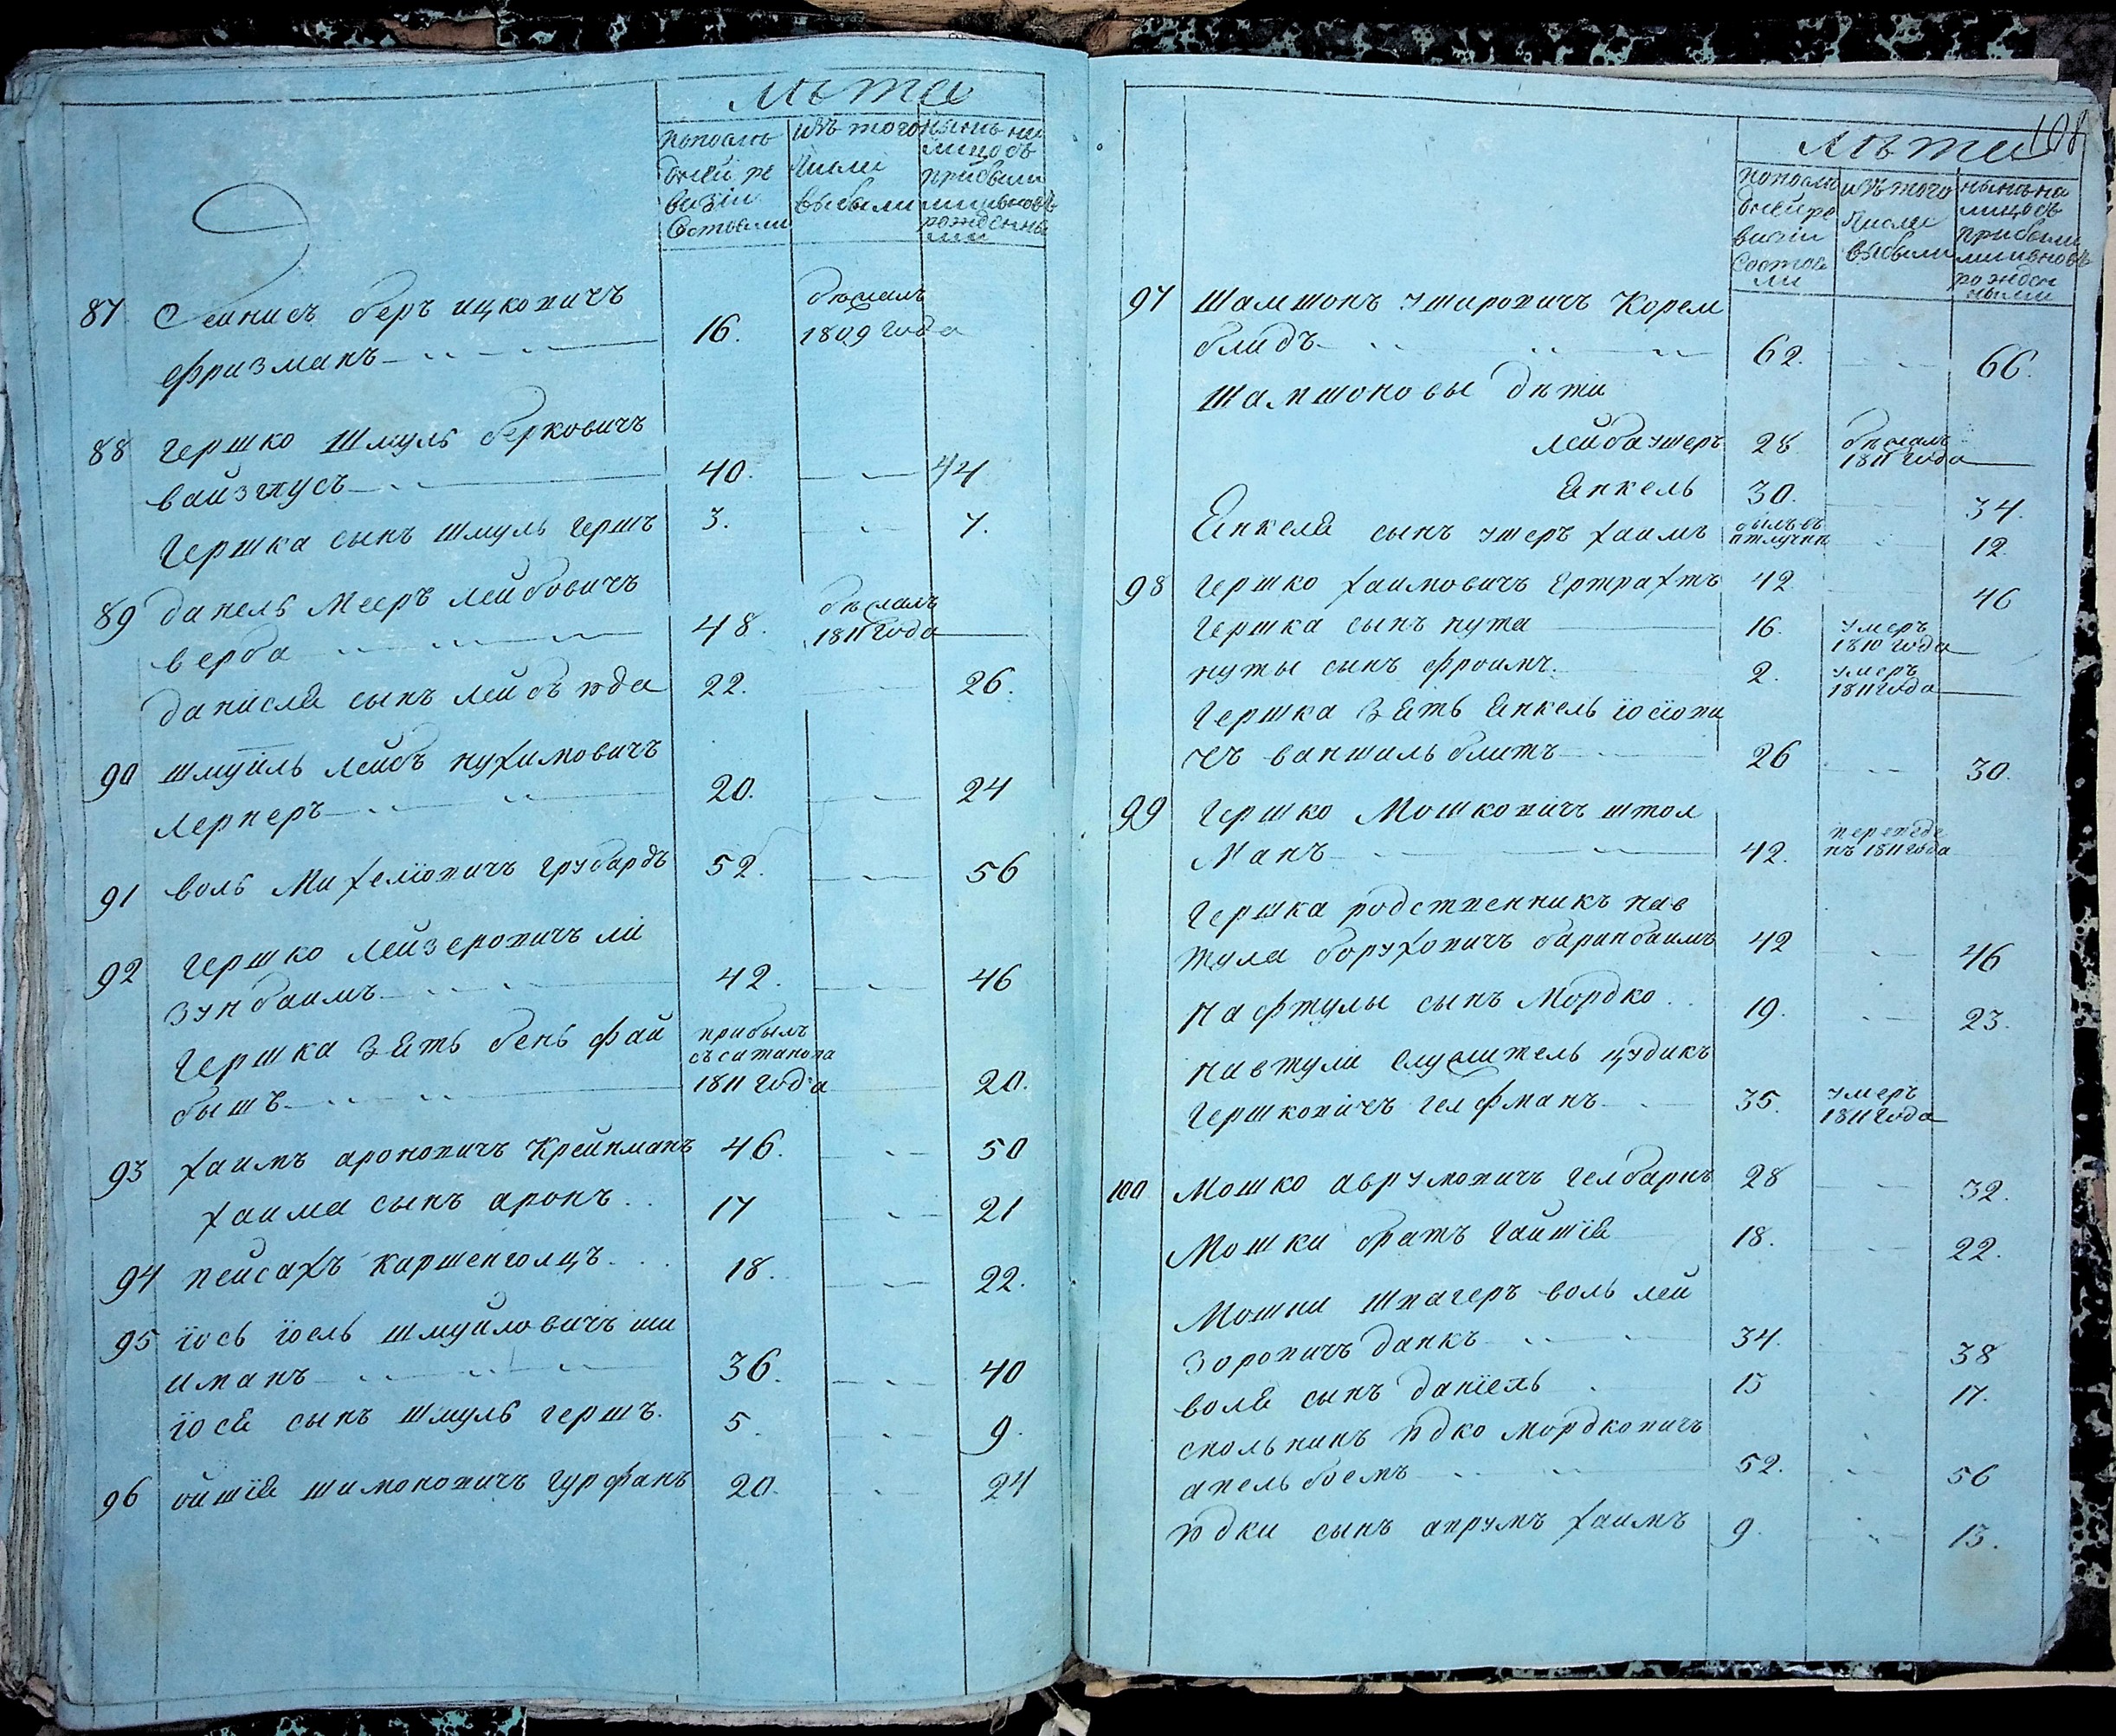 лѣта
попослѣ
дней ре
визіи
Состояли
изъ того
числа
выбыли
нынѣ на
лицо съ
прибыли
ми ивновь
рожденны
ми
87 Сейнисъ беръ ицковичъ
фризманъ 16. бѣжалъ 1809 года
88 гершко Шмуль берковичъ
вайзглусъ 40. 44
Гершка сынъ шмуль гершъ 3. 7.
89 данель Мееръ лейбовичъ
верба 48. бѣжалъ 1811 года
даниеля сынъ лейбъ юда 22. 26.
90 шмуйль лейбъ нухимовичъ
лернеръ 20. 24
91 воль Михеліовичъ грубардъ 52. 56
92 Гершко лейзеровичъ ли
зунбаимъ 42. 46
Гершка зять бень фай
бышъ прибылъ съ сатанова 1811 года 20.
93 хаимъ ароновичъ Крейнманъ 46. 50
хаима сынъ аронъ 17 21
94 пейсахъ каршенголцъ 18. 22.
95 іось іоель шмуйловичъ ши
иманъ 36. 40
іося сынъ шмуль гершъ. 5. 9.
96 ойшія шимоновичъ гурфанъ 20. 24
108
лѣта
попослѣ
дней ре
визіи
Состоя
ли
изъ того
числа
выбыли
нынѣ на
лицо съ
прибыли
ми ивновь
рожден
ными
97 Шамшонъ ушировичъ Корем
блидъ 62. 66.
Шамшоновы дѣти
лейба ушеръ 28 бѣжалъ 1811 года
Янкель 30. 34
Янкеля сынъ ушеръ хаимъ былъ въ отлучкѣ 12.
98 Гершко хаимовичъ Ертрахтъ 42. 46
Гершка сынъ нута 16. умеръ 1810 года
нуты сынъ фроимъ. 2. умеръ 1811 года
Гершка зять Янкель іосіови
чъ ваншильблитъ 26 30.
99 Гершко Мошковичъ штол
Манъ 42. переведе нъ 1811 года
Гершка родственникъ нав
тула боруховичъ баринбаимъ 42 46
Нафтулы сынъ Мордко 19. 23.
навтули служитель цудикъ
Гершковичъ гелфманъ 35. умеръ 1811 года
100 Мошко аврумовичъ гелбарнъ 28 32.
Мошки братъ гаишія 18. 22.
Мошки швагеръ воль лей
зоровичъ данкъ 34. 38
воля сынъ даніель 13 17.
школьникъ юдко мордковичъ
апельбоемъ 52. 56
юдки сынъ аврумъ хаимъ 9. 13.